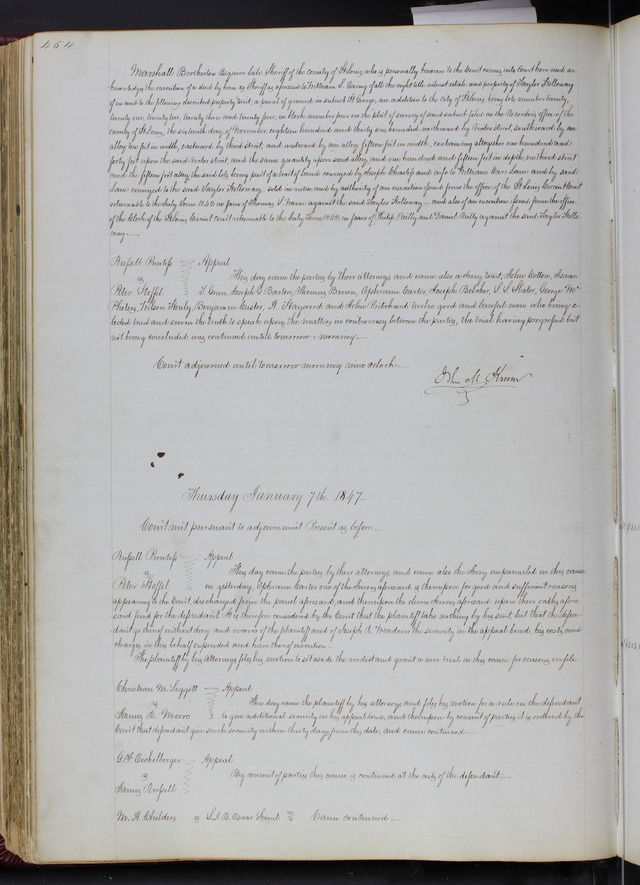 454
Marshall Brotherton Esquire late Sheriff of the county of St Louis, who is personally known to the Court comes into Court here and ac-
knowledges the execution of a deed by him as Sheriff as aforesaid to William L. Ewing of all the right title interest estate and property of Taylor Holloway
of in and to the following described property to wit, a parcel of ground in suburb St George, an addition to the City of St Louis, being lots number twenty,
twenty one, twenty two, twenty three and twenty four, in block number four on the plat of survey of said suburb filed in the Recorder's office of the
county of St Louis, the sixteenth day of November, eighteen hundred and thirty six, bounded northward by street, southward by an
alley ten feet in width, eastward by third street, and westward by an alley fifteen feet in width, containing altogether one hundred and
forty feet upon the said street, and the same quantity upon said alley, and one hundred and fifteen feet in depth, on third street
and the fifteen feet alley, the said lots being part of a tract of land conveyed by Joseph Charless and wife to William Carr Lane and by said
Lane conveyed to the said Taylor Holloway, sold in virtue and by authority of an execution issued from the office of the St Louis Circuit Court
returnable to the July Term 1843 in favor of Thomas J. against the said Taylor Holloway and also of an execution issued from the office
of the Clerk of the St Louis Circuit Court returnable to the July Term 1843 in favor of Philip Reilly and Daniel Reilly against the said Taylor Hollo-
way
Russell Prentiss
vs
Peter Stoffel
Appeal
This day came the parties by their attorneys and came also a Jury to wit; John Collow, Isaac
T. Green, Joseph S Barton, Thomas Brown, Ephraim Carter, Joseph Belcher, S. S. Slater, George Mc
Pheters, Wilson Henly, Benjamin Custer, A. Haywood and John Pritchard twelve good and lawful men who being e-
lected tried and sworn the truth to speak upon the matters in controversy between the parties, the trial having progressed but
not being concluded was continued untill tomorrow morning.
Court adjourned until tomorrow morning nine oclock
John M. Krum
Thursday January 7th 1847
Court met pursuant to adjournment Present as before
Russell Prentiss
vs
Peter Stoffel
Appeal
This day came the parties by their attorneys and came also the Jury empannelled in this cause
on yesterday, Ephraim Carter one of the Jurors aforesaid is thereupon for good and sufficient reasons
appearing to the Court, discharged from the panel aforesaid, and thereupon the eleven Jurors aforesaid upon their oaths afore-
said find for the defendant. It is therefore considered by the Court that the plaintiff take nothing by his suit, but that the defen-
dant go thereof without day and recover of the plaintiff and of Joseph A. the security in the appeal bond, his costs and
charges in this behalf expended and have thereof execution.
The plaintiff by his attorney files his motion to set aside the verdict and grant a new trial in this cause for reasons on file
Christian M. Liggett
vs
James H. Moore
Appeal
This day came the plaintiff by his attorney and files his motion for a rule on the defendant
to give additional security in his appeal bond, and thereupon by consent of parties it is ordered by the
Court that defendant give such security within thirty days from this date, and cause continued.
G A Eichelberger
vs
James Russell
Appeal
By consent of parties this cause is continued at the costs of the defendant
M. A. Childers vs S. S. B. Cause continued